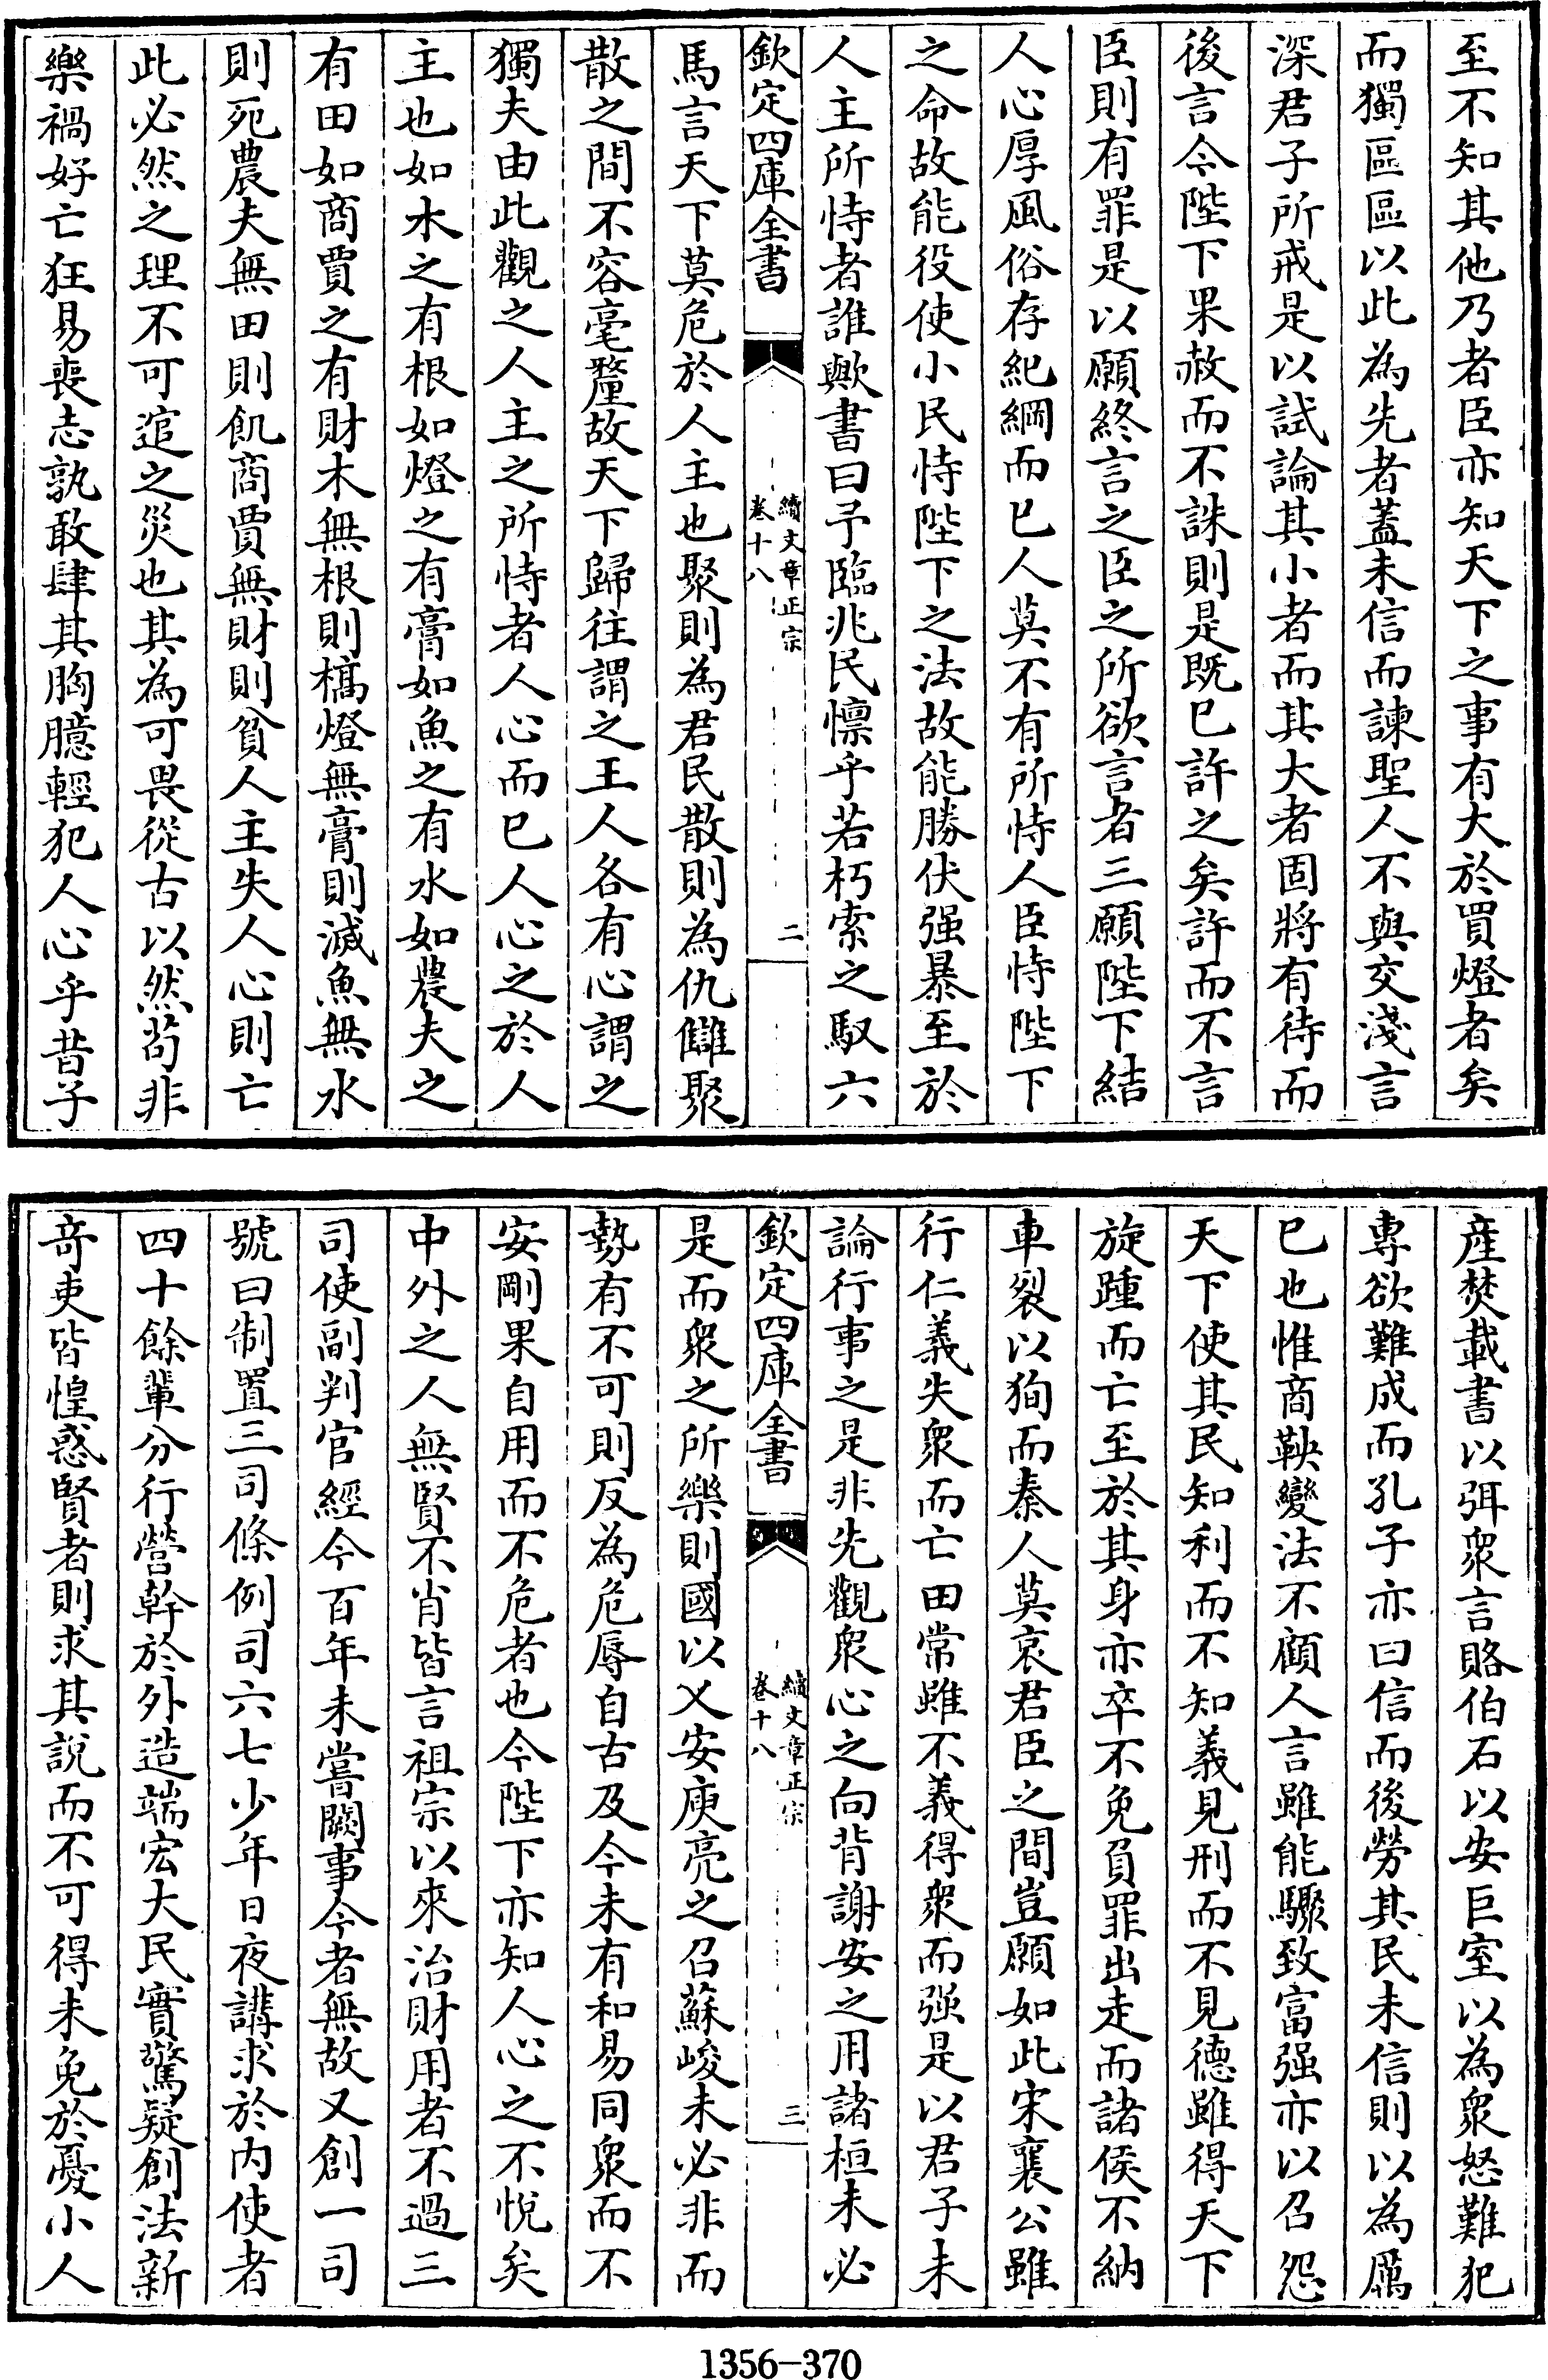 至不知其他乃者臣亦知天下之事有大於買燈者矣
而獨區區以此為先者蓋未信而諫聖人不與交淺言
深君子所戒是以試論其小者而其大者固將有待而
後言今陛下果赦而不誅則是既已許之矣許而不言
臣則有罪是以願終言之臣之所欲言者三願陛下結
人心厚風俗存紀綱而已人莫不有所恃人臣恃陛下
之命故能役使小民恃陛下之法故能勝伏强暴至於
人主所恃者誰歟書曰予臨兆民懍乎若朽索之馭六
欽定四庫全書
續文章正宗
卷十八
二
馬言天下莫危於人主也聚則為君民散則為仇讎聚
散之間不容毫釐故天下歸往謂之王人各有心謂之
獨夫由此觀之人主之所恃者人心而已人心之於人
主也如水之有根如燈之有膏如魚之有水如農夫之
有田如商賈之有財木無根則槁燈無膏則滅魚無水
則死農夫無田則飢商賈無財則貧人主失人心則亡
此必然之理不可逭之災也其為可畏從古以然茍非
樂禍好亡狂易喪志孰敢肆其胸臆輕犯人心乎昔子
産焚載書以弭衆言賂伯石以安巨室以為衆怒難犯
專欲難成而孔子亦曰信而後勞其民未信則以為厲
已也惟商鞅變法不顧人言雖能驟致富强亦以召怨
天下使其民知利而不知義見刑而不見德雖得天下
旋踵而亡至於其身亦卒不免負罪出走而諸侯不納
車裂以狥而秦人莫哀君臣之間豈願如此宋襄公雖
行仁義失衆而亡田常雖不義得衆而强是以君子未
論行事之是非先觀衆心之向背謝安之用諸桓未必
欽定四庫全書
續文章正宗
卷十八
三
是而衆之所樂則國以乂安庾亮之召蘇峻未必非而
勢有不可則反為危辱自古及今未有和易同衆而不
安剛果自用而不危者也今陛下亦知人心之不悅矣
中外之人無賢不肖皆言祖宗以來治財用者不過三
司使副判官經今百年未嘗闕事今者無故又創一司
號曰制置三司條例司六七少年日夜講求於内使者
四十餘輩分行營幹於外造端宏大民實驚疑創法新
竒吏皆惶惑賢者則求其說而不可得未免於憂小人
1356-370